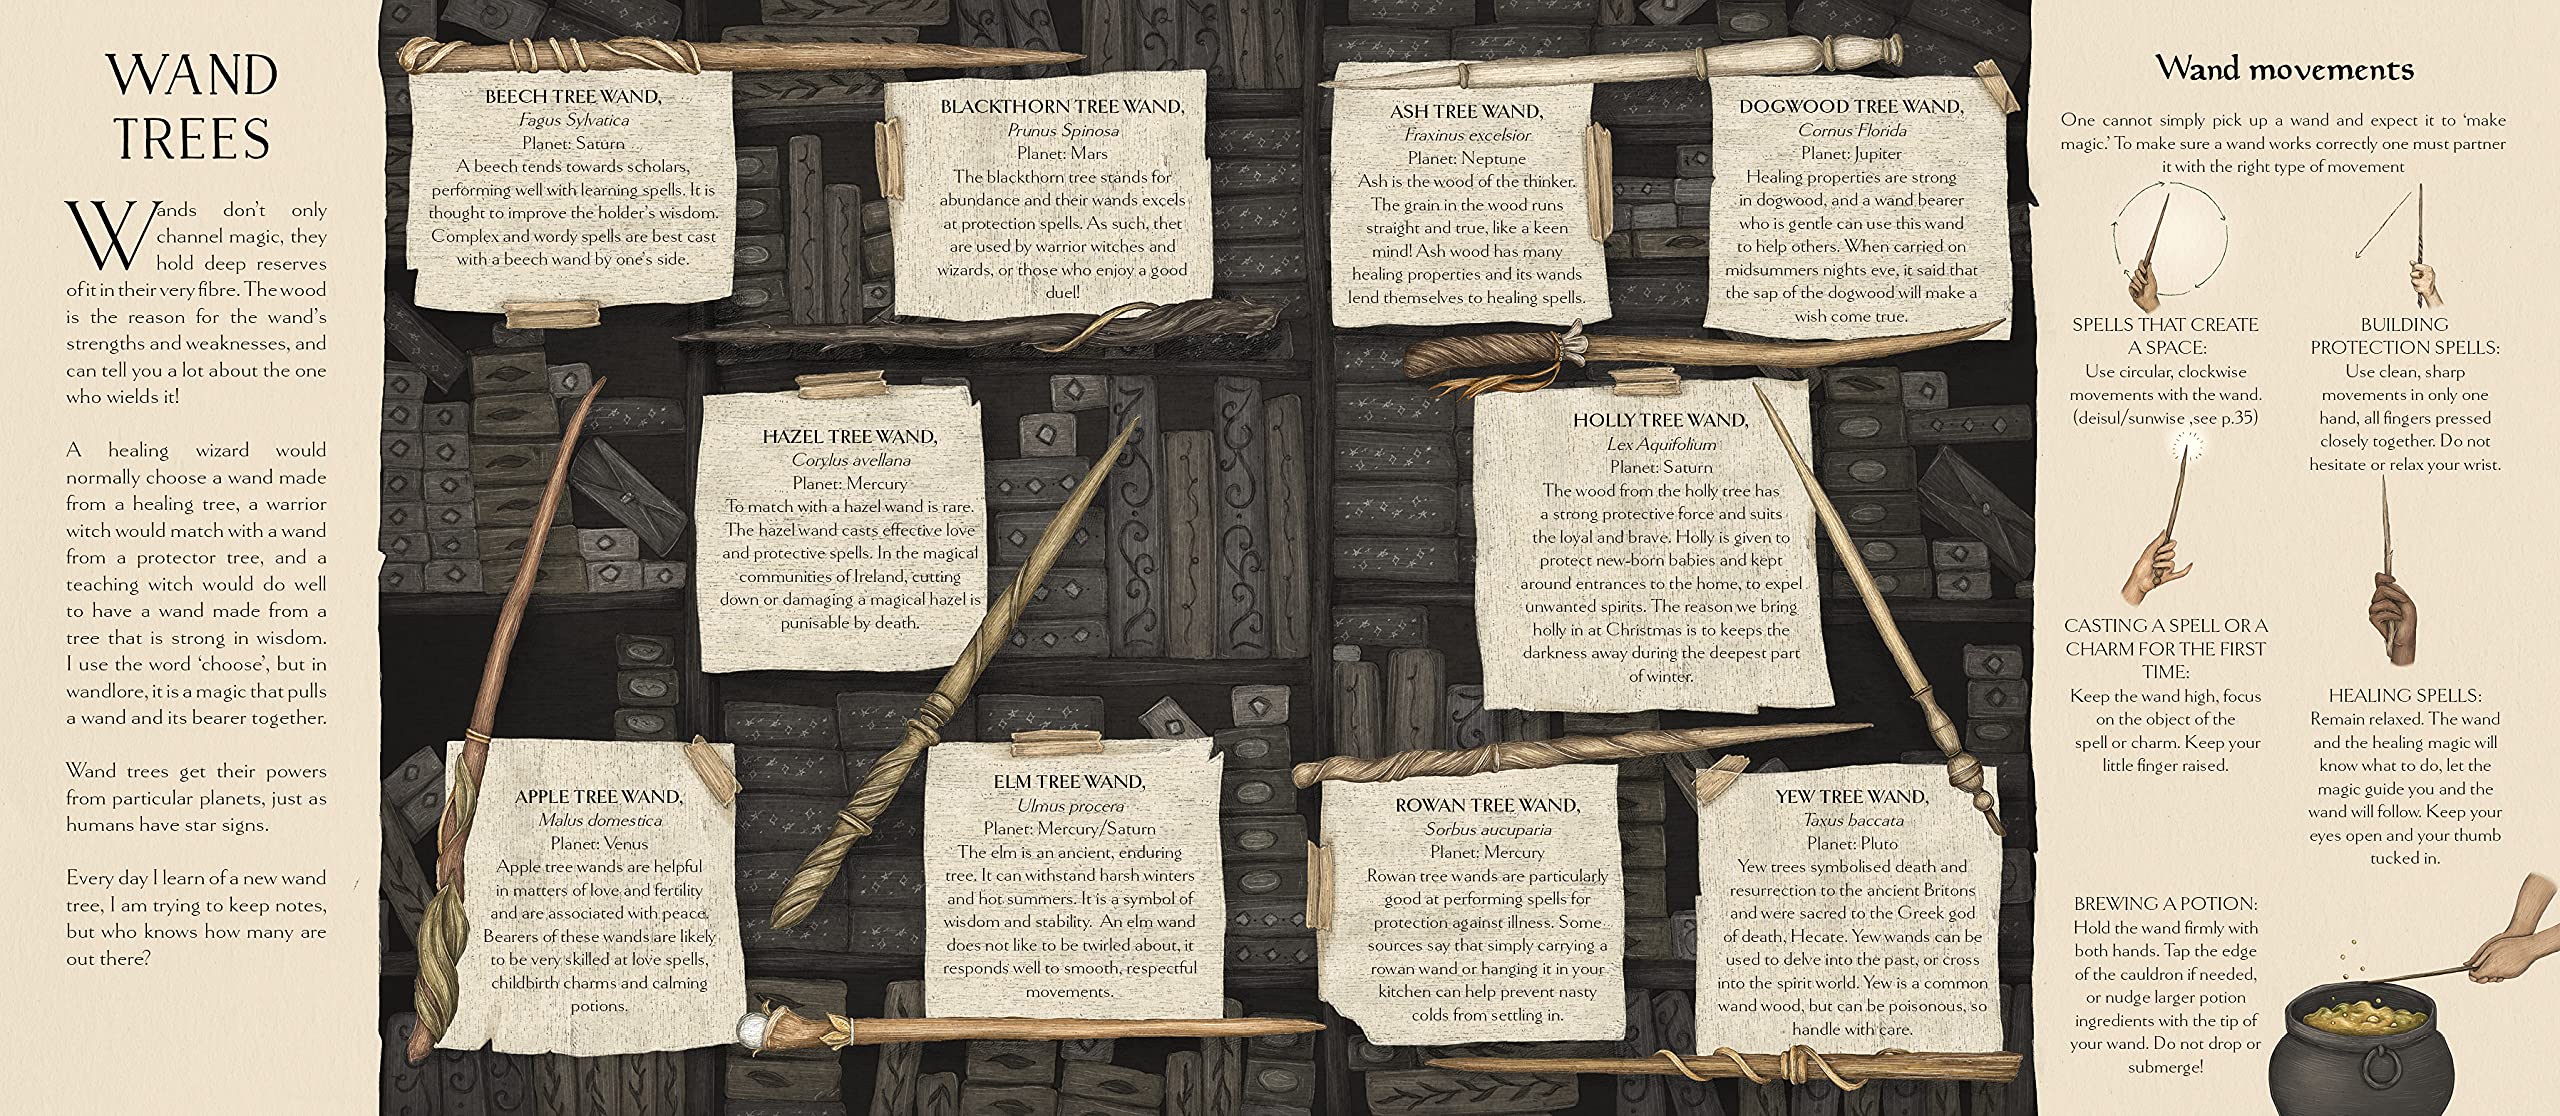 WAND
TREES
Wands don't only
channel magic, they
hold deep reserves
of it in their very fibre. The wood
is the reason for the wand's
strengths and weaknesses, and
can tell you a lot about the one
who wields it!
A healing wizard would
normally choose a wand made
from a healing tree, a warrior
witch would match with a wand
from a protector tree, and a
teaching witch would do well
to have a wand made from a
tree that is strong in wisdom.
I use the word 'choose', but in
wandlore, it is a magic that pulls
a wand and its bearer together.
Wand trees get their powers
from particular planets, just as
humans have star signs.
Every day I learn of a new wand
tree, I am trying to keep notes,
but who knows how many are
out there?
BEECH TREE WAND,
Fagus Sylvatica
Planet: Saturn
A beech tends towards scholars,
performing well with learning spells. It is
thought to improve the holder's wisdom.
Complex and wordy spells are best cast
with a beech wand by one's side.
BLACKTHORN TREE WAND,
Prunus Spinosa
Planet: Mars
The blackthorn tree stands for
abundance and their wands excels
at protection spells. As such, thet
are used by warrior witches and
wizards, or those who enjoy a good
duel!
HAZEL TREE WAND,
Corylus avellana
Planet: Mercury
To match with a hazel wand is rare.
The hazel wand casts effective love
and protective spells. In the magical
communities of Ireland, cutting
down or damaging a magical hazel is
punisable by death.
APPLE TREE WAND,
Malus domestica
Planet: Venus
Apple tree wands are helpful
in matters of love and fertility
and are associated with peace.
Bearers of these wands are likely
to be very skilled at love spells,
childbirth charms and calming
potions.
ELM TREE WAND,
Ulmus procera
Planet: Mercury/Saturn
The elm is an ancient, enduring
tree. It can withstand harsh winters
and hot summers. It is a symbol of
wisdom and stability. An elm wand
does not like to be twirled about, it
responds well to smooth, respectful
movements.
ASH TREE WAND,
Fraxinus excelsior
Planet: Neptune
Ash is the wood of the thinker.
The grain in the wood runs
straight and true, like a keen
mind! Ash wood has many
healing properties and its wands
lend themselves to healing spells.
DOGWOOD TREE WAND,
Cornus Florida
Planet: Jupiter
Healing properties are strong
in dogwood, and a wand bearer
who is gentle can use this wand
to help others. When carried on
midsummers nights eve, it said that
the sap of the dogwood will make a
wish come true.
HOLLY TREE WAND,
Lex Aquifolium
Planet: Saturn
The wood from the holly tree has
a strong protective force and suits
the loyal and brave. Holly is given to
protect new-born babies and kept
around entrances to the home, to expel
unwanted spirits. The reason we bring
holly in at Christmas is to keeps the
darkness away during the deepest part
of winter.
ROWAN TREE WAND,
Sorbus aucuparia
Planet: Mercury
Rowan tree wands are particularly
good at performing spells for
protection against illness. Some
sources say that simply carrying a
rowan wand or hanging it in your
kitchen can help prevent nasty
colds from settling in.
YEW TREE WAND,
Taxus baccata
Planet: Pluto
Yew trees symbolised death and
resurrection to the ancient Britons
and were sacred to the Greek god
of death, Hecate. Yew wands can be
used to delve into the past, or cross
into the spirit world. Yew is a common
wand wood, but can be poisonous, so
handle with care.
Wand movements
One cannot simply pick up a wand and expect it to 'make
magic.' To make sure a wand works correctly one must partner
it with the right type of movement
SPELLS THAT CREATE
A SPACE:
Use circular, clockwise
movements with the wand.
(deisul/sunwise ,see p.35)
BUILDING
PROTECTION SPELLS:
Use clean, sharp
movements in only one
hand, all fingers pressed
closely together. Do not
hesitate or relax your wrist.
CASTING A SPELL OR A
CHARM FOR THE FIRST
TIME:
Keep the wand high, focus
on the object of the
spell or charm. Keep your
little finger raised.
HEALING SPELLS:
Remain relaxed. The wand
and the healing magic will
know what to do, let the
magic guide you and the
wand will follow. Keep your
eyes open and your thumb
tucked in.
BREWING A POTION:
Hold the wand firmly with
both hands. Tap the edge
of the cauldron if needed,
or nudge larger potion
ingredients with the tip of
your wand. Do not drop or
submerge!